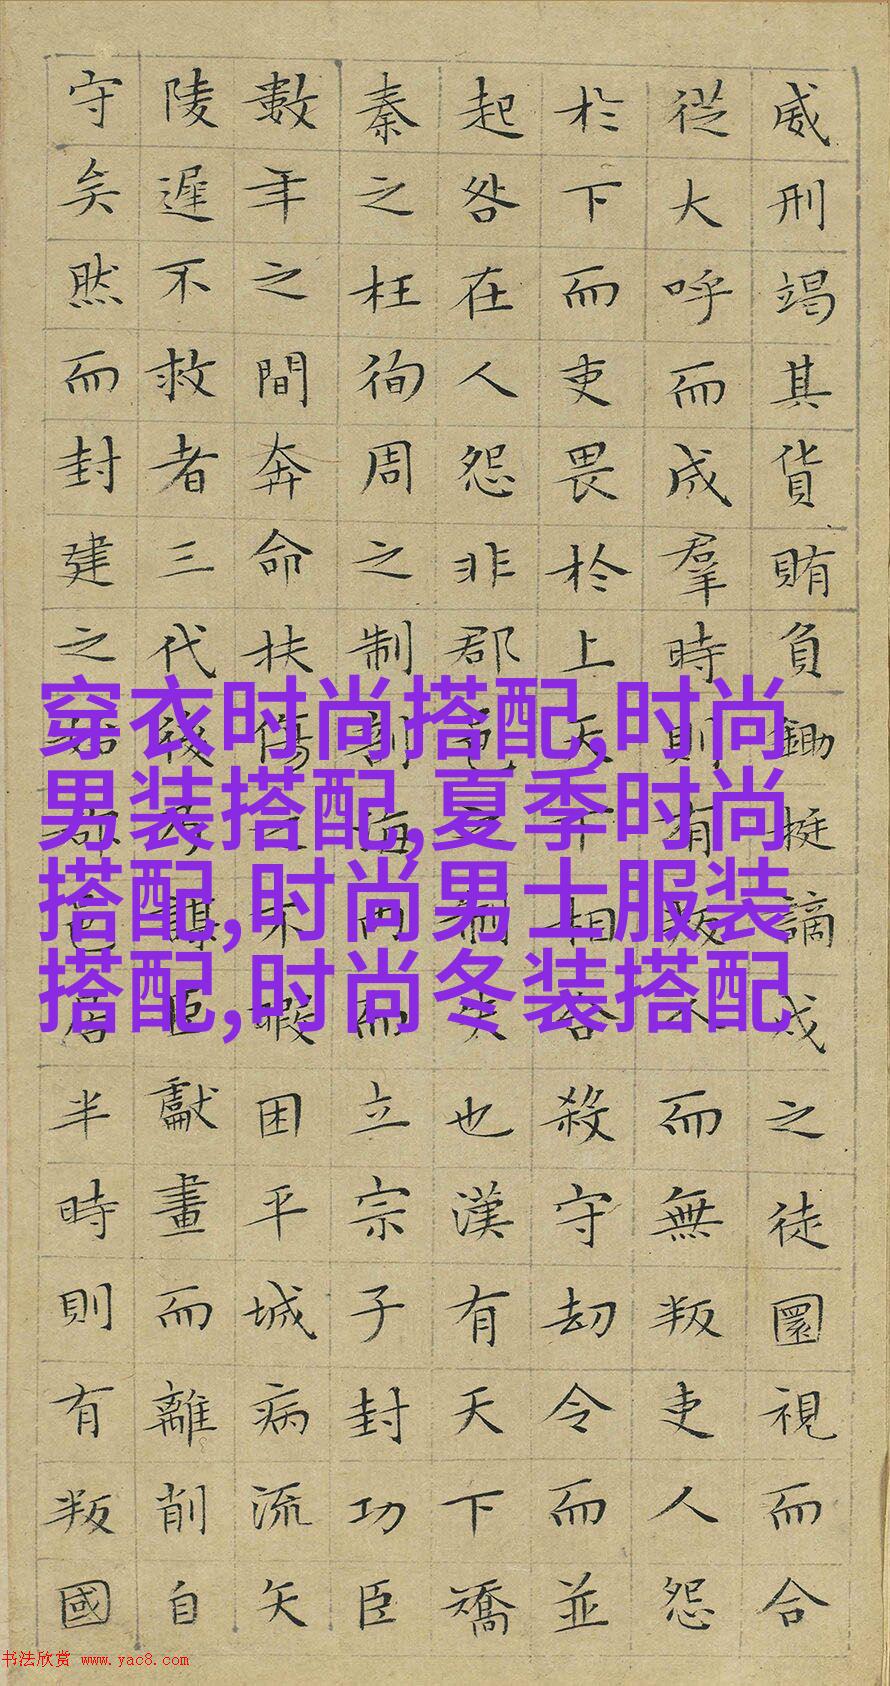 威刑竭其貨賄負鋤梃謫戍之徒圜視而合
從大呼而成羣時則有叛人而無叛吏人怨
於下而吏畏於上天下相合殺守劫令而並
起咎在人怨非郡邑之制失也漢有天下矯
秦之枉徇周之制剖海內而立宗子封功臣
數年之間奔命扶傷之不暇困平城病流矢
陵遲不救者三代後乃謀臣獻畫而離削自
守矣然而封建之始郡邑居半時則有叛國
穿衣时尚搭配,时尚
男装搭配,夏季时尚
搭配,时尚男士服装
搭配,时尚冬装搭配
书法欣赏 www.yac8.com